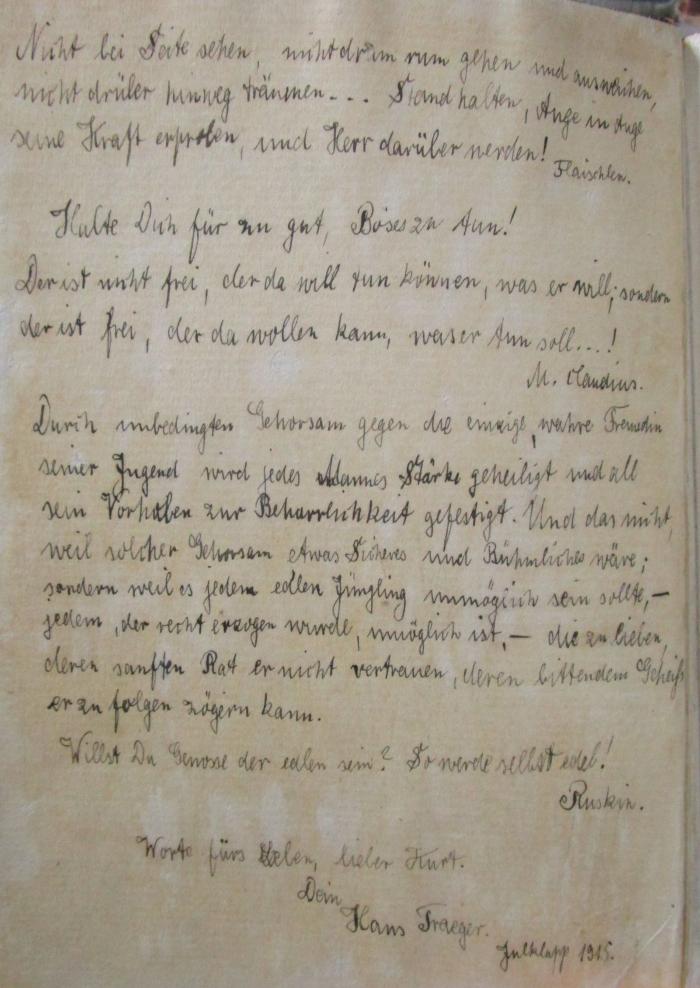 Nicht bei Seite sehen, nicht drum rum gehen und ausweichen,
nicht drüber hinweg träumen... Stand halten, Auge in Auge
seine Kraft erproben, und Herr darüber werden!
Flaischlen.
Halte Dich für zu gut, Böses zu tun!
Der ist nicht frei, der da will tun können, was er will; sondern
der ist frei, der da wollen kann, was er tun soll...!
M. Claudius.
Durch unbedingten Gehorsam gegen die einzige, wahre Freundin
seiner Jugend wird jedes Mannes Stärke geheiligt und all
sein Vorhaben zur Beharrlichkeit gefestigt. Und das nicht,
weil solcher Gehorsam etwas Sicheres und Rühmliches wäre;
sondern weil es jedem edlen Jüngling unmöglich sein sollte, —
jedem, der recht erzogen wurde, unmöglich ist, — die zu lieben,
deren sanften Rat er nicht vertrauen, deren bittendem Geheiß
er zu folgen zögern kann.
Willst Du Genosse der edlen sein? So werde selbst edel!
Ruskin.
Worte fürs Leben, lieber Kurt.
Dein
Hans Traeger.
Julklapp 1915.